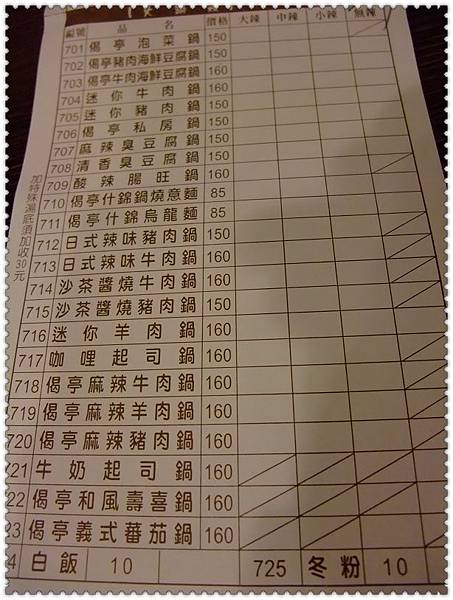 編號 品名 價格 大辣 中辣 小辣 無辣
701 偈亭泡菜鍋 150
702 偈亭豬肉海鮮豆腐鍋 150
703 偈亭牛肉海鮮豆腐鍋 160
704 迷你牛肉鍋 160
705 迷你豬肉鍋 150
706 偈亭私房鍋 150
707 麻辣臭豆腐鍋 150
708 清香臭豆腐鍋 150
709 酸辣腸旺鍋 160
710 偈亭什錦鍋燒意麵 85
711 偈亭什錦烏龍麵 85
712 日式辣味豬肉鍋 150
713 日式辣味牛肉鍋 160
714 沙茶醬燒牛肉鍋 160
715 沙茶醬燒豬肉鍋 150
716 迷你羊肉鍋 160
717 咖哩起司鍋 160
718 偈亭麻辣牛肉鍋 160
719 偈亭麻辣羊肉鍋 160
720 偈亭麻辣豬肉鍋 160
21 牛奶起司鍋 160
22 偈亭和風壽喜鍋 160
23 偈亭義式蕃茄鍋 160
4 白飯 10 725 冬粉 10
加特殊湯底須加收30元